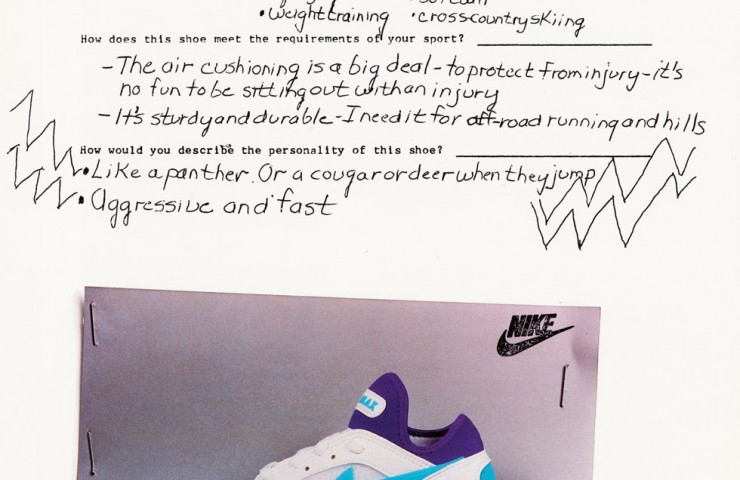 •Weight training •crosscountry skiing
How does this shoe meet the requirements of your sport?
– The air cushioning is a big deal – to protect from injury – it's
no fun to be sitting out with an injury
– It's sturdy and durable – I need it for off-road running and hills
How would you describe the personality of this shoe?
• Like a panther. Or a cougar or deer when they jump
• aggressive and fast
NIKE
MAX